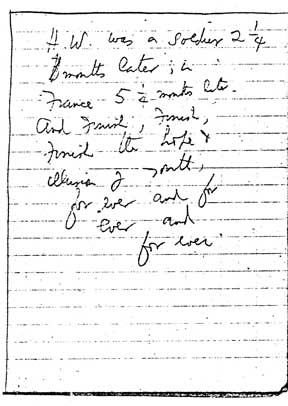 H.W. was a soldier 2 1/4
months later; in
France 5 1/2 months later.
And Finish, Finish,
Finish the hope &
illusion of youth,
for ever and for
ever and
for ever